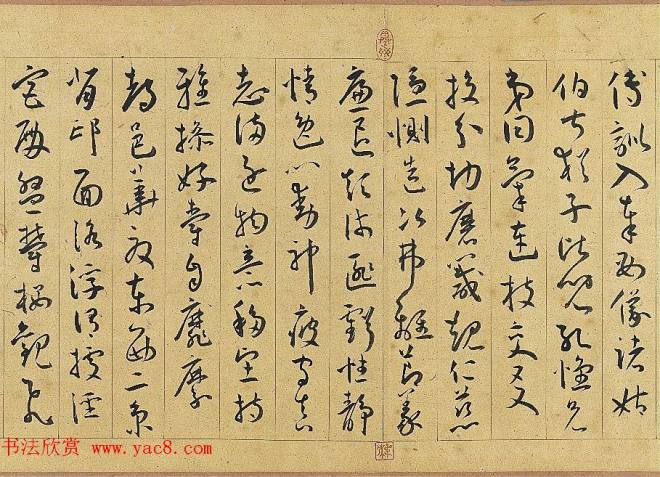 傅訓入奉母儀諸姑
伯叔猶子比兒孔懷兄
弟同氣連枝交友
投分切磨箴規仁慈
隱惻造次弗離節義
廉退顛沛匪虧性靜
情逸心動神疲守真
志滿逐物意移堅持
雅操好爵自靡縻
都邑華夏東西二京
背邙面洛浮渭據涇
宮殿盤鬱樓觀飛
书法欣赏 www.yac8.com